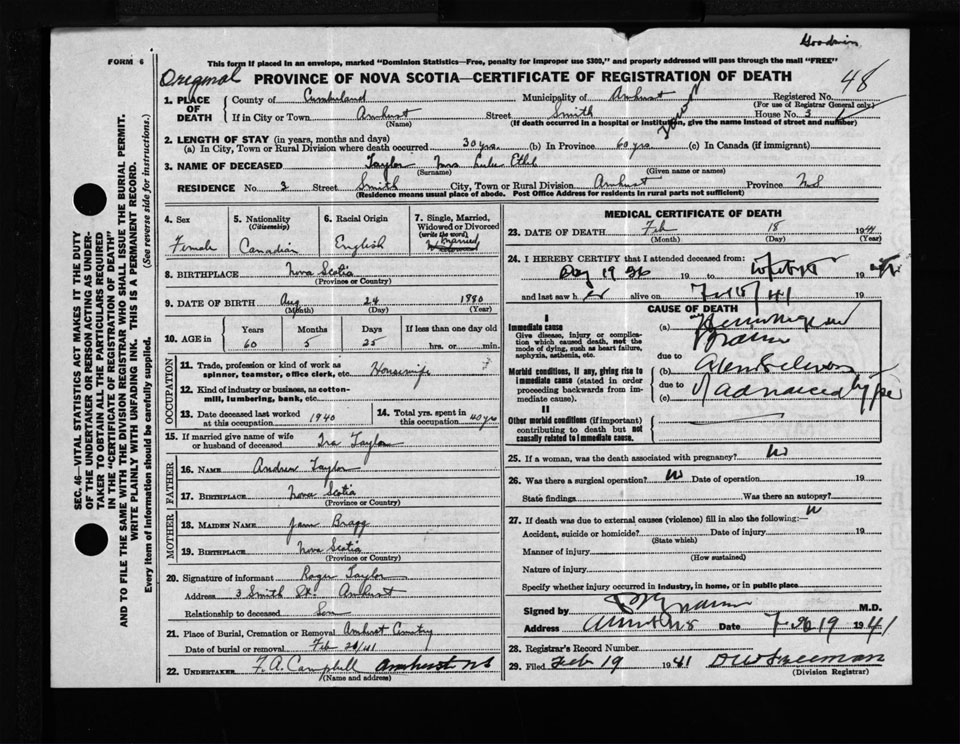 FORM 6
Goodwin
This form if placed in an envelope, marked "Dominion Statistics—Free, penalty for improper use $300," and properly addressed will pass through the mail "FREE"
Original
PROVINCE OF NOVA SCOTIA—CERTIFICATE OF REGISTRATION OF DEATH
48
SEC. 46—VITAL STATISTICS ACT MAKES IT THE DUTY
OF THE UNDERTAKER OR PERSON ACTING AS UNDER-
TAKER TO OBTAIN ALL THE PARTICULARS REQUIRED
IN THE "CERTIFICATE OF REGISTRATION OF DEATH"
AND TO FILE THE SAME WITH THE DIVISION REGISTRAR WHO SHALL ISSUE THE BURIAL PERMIT.
WRITE PLAINLY WITH UNFADING INK. THIS IS A PERMANENT RECORD.
Every item of information should be carefully supplied. (See reverse side for instructions.)
1. PLACE OF DEATH
County of Cumberland Municipality of Amherst Registered No.
(For use of Registrar General only)
If in City or Town Amherst Street Smith House No. 3
(Name) (If death occurred in a hospital or institution, give the name instead of street and number)
2. LENGTH OF STAY (in years, months and days)
(a) In City, Town or Rural Division where death occurred 30 yrs. (b) In Province 60 yrs. (c) In Canada (if immigrant)
3. NAME OF DECEASED Taylor Mrs Lulu Ethel
(Surname) (Given name or names)
RESIDENCE No. 3 Street Smith City, Town or Rural Division Amherst Province N.S
(Residence means usual place of abode. Post Office Address for residents in rural parts not sufficient)
4. Sex
Female
5. Nationality
(Citizenship)
Canadian
6. Racial Origin
English
7. Single, Married,
Widowed or Divorced
(write the word)
Married
8. BIRTHPLACE Nova Scotia
(Province or Country)
9. DATE OF BIRTH Aug 24 1880
(Month) (Day) (Year)
10. AGE in
Years Months Days If less than one day old
60 5 25 hrs. or min.
OCCUPATION
11. Trade, profession or kind of work as
spinner, teamster, office clerk, etc. Housewife
12. Kind of industry or business, as cotton-
mill, lumbering, bank, etc.
13. Date deceased last worked
at this occupation 1940
14. Total yrs. spent in
this occupation 40 yrs
15. If married give name of wife
or husband of deceased Ira Taylor
FATHER
16. NAME Andrew Taylor
17. BIRTHPLACE Nova Scotia
(Province or Country)
MOTHER
18. MAIDEN NAME Jane Bragg
19. BIRTHPLACE Nova Scotia
(Province or Country)
20. Signature of informant Roger Taylor
Address 3 Smith St. Amherst
Relationship to deceased Son
21. Place of Burial, Cremation or Removal Amherst Cemetry
Date of burial or removal Feb 20/41
22. UNDERTAKER F. A. Campbell Amherst N S
(Name and address)
MEDICAL CERTIFICATE OF DEATH
23. DATE OF DEATH Feb 18 1941
(Month) (Day) (Year)
24. I HEREBY CERTIFY that I attended deceased from:
19 to 19
and last saw her alive on 19
CAUSE OF DEATH
I
Immediate cause
Give disease, injury or complica-
tion which caused death, not the
mode of dying, such as heart failure,
asphyxia, asthenia, etc.
Morbid conditions, if any, giving rise to
immediate cause (stated in order
proceeding backwards from im-
mediate cause).
II
Other morbid conditions (if important)
contributing to death but not
causally related to immediate cause.
(a)
due to
(b)
due to
(c) advanced
25. If a woman, was the death associated with pregnancy?
26. Was there a surgical operation? Date of operation 19
State findings Was there an autopsy?
27. If death was due to external causes (violence) fill in also the following:—
Accident, suicide or homicide? Date of injury 19
(State which)
Manner of injury
(How sustained)
Nature of injury
Specify whether injury occurred in industry, in home, or in public place
Signed by M.D.
Address Date Feb 19 1941
28. Registrar's Record Number
29. Filed Feb 19 1941 D W Freeman
(Division Registrar)